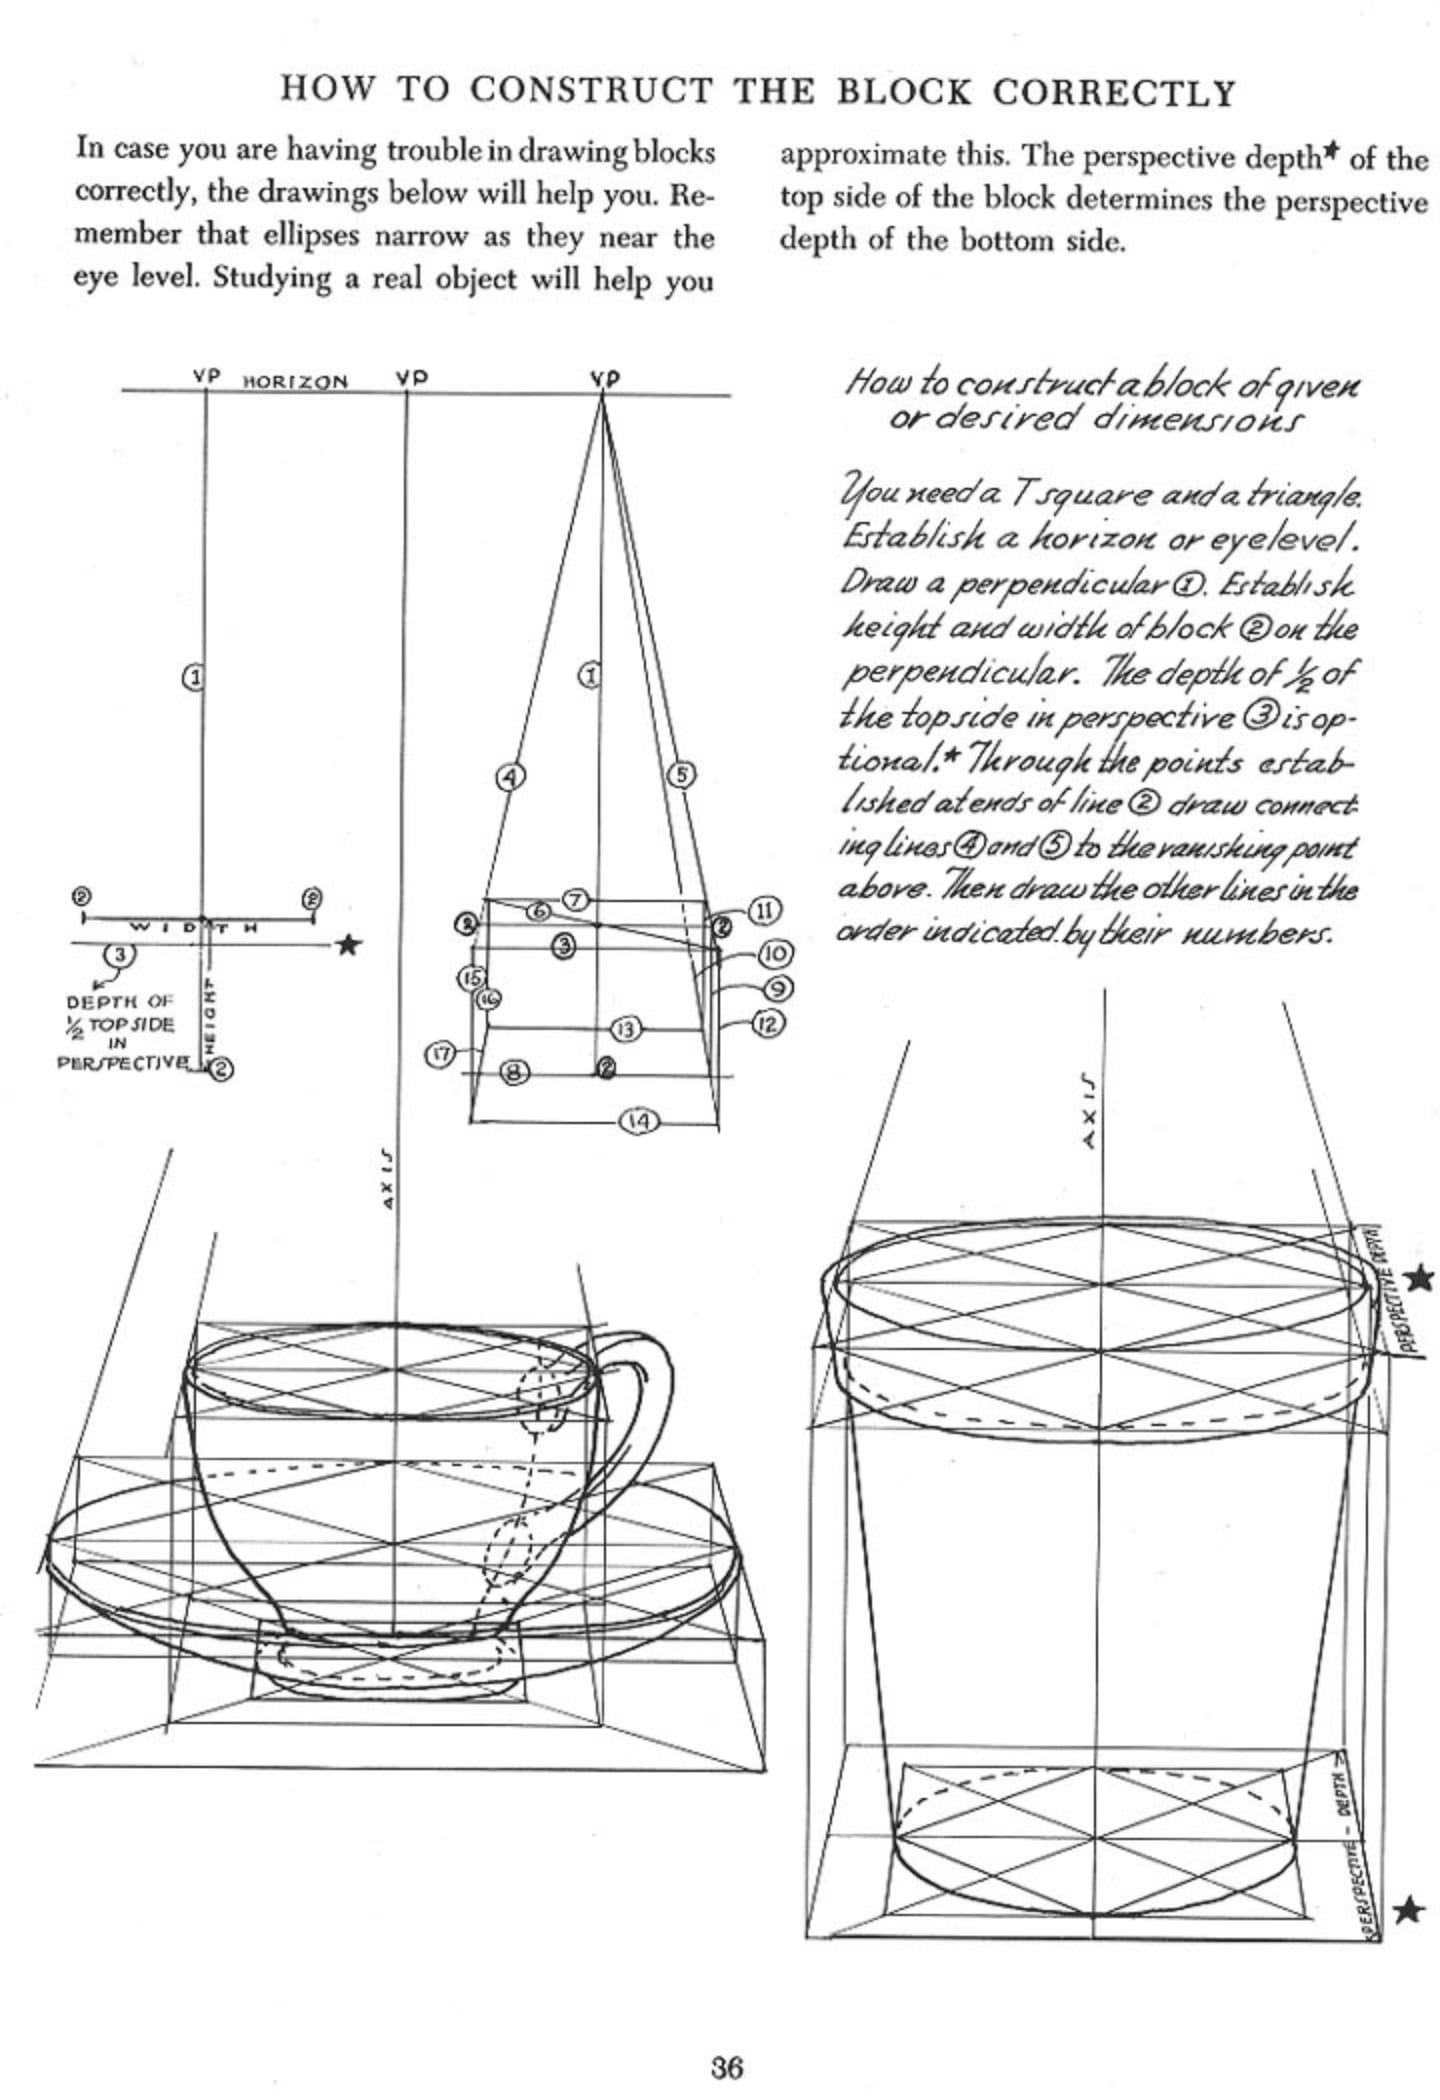 HOW TO CONSTRUCT THE BLOCK CORRECTLY
In case you are having trouble in drawing blocks
correctly, the drawings below will help you. Re-
member that ellipses narrow as they near the
eye level. Studying a real object will help you
approximate this. The perspective depth★ of the
top side of the block determines the perspective
depth of the bottom side.
VP HORIZON VP VP
How to construct a block of given
or desired dimensions
You need a T square and a triangle.
Establish a horizon or eyelevel.
Draw a perpendicular ①. Establish
height and width of block ② on the
perpendicular. The depth of ½ of
the topside in perspective ③ is op-
tional.* Through the points estab-
lished at ends of line ② draw connect-
ing lines ④ and ⑤ to the vanishing point
above. Then draw the other lines in the
order indicated by their numbers.
①
② ②
WIDTH
③ ★
DEPTH OF
½ TOP SIDE
IN
PERSPECTIVE
HEIGHT
②
①
④ ⑤
⑦
⑥ ⑪
② ②
③
⑩
⑮
⑨
⑯
⑬ ⑫
⑰
⑧ ②
⑭
AXIS
AXIS
PERSPECTIVE DEPTH
★
PERSPECTIVE - DEPTH
★
36